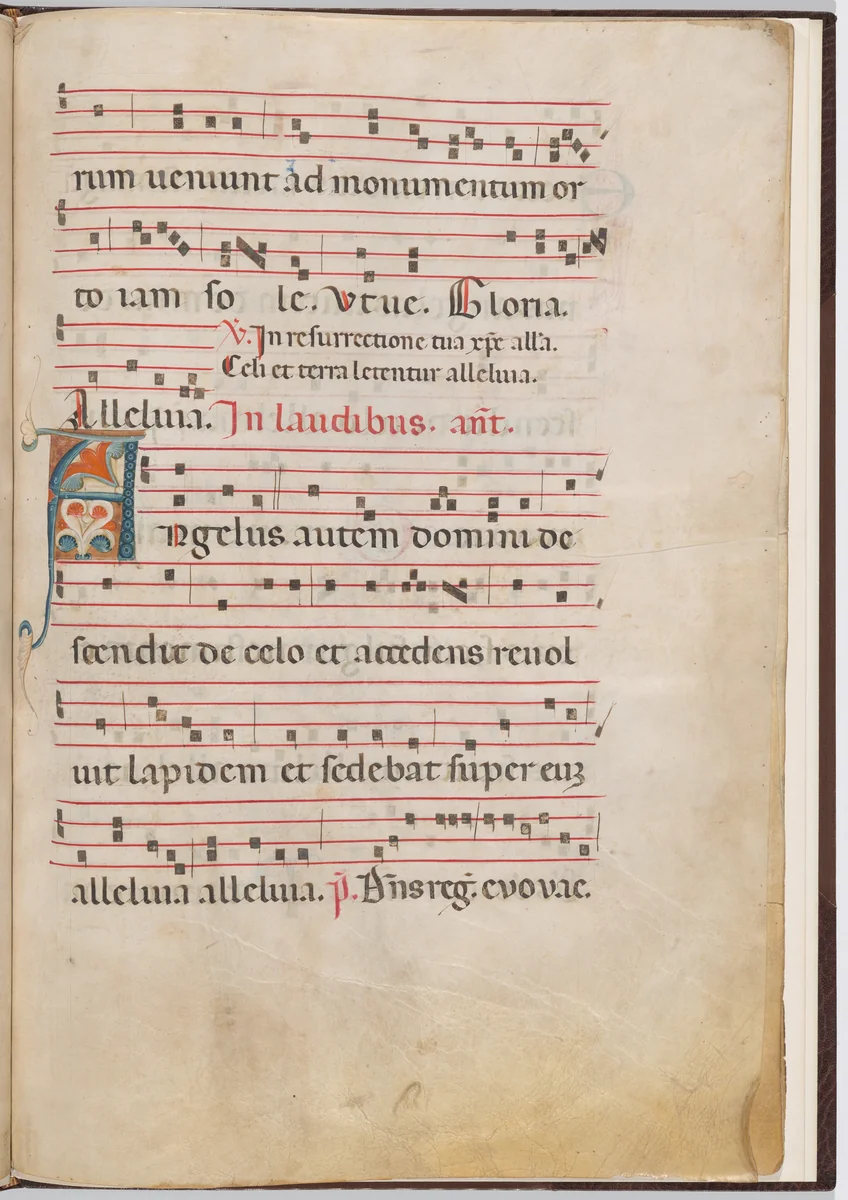 rum ueniunt ad monumentum or
to iam so le. Vt ue. Gloria.
V̇. In resurrectione tua xp̄e all'a.
Celi et terra letentur alleluia.
Alleluia. In laudibus. an̄t.
Angelus autem domini de
scendit de celo et accedens reuol
uit lapidem et sedebat super euʒ
alleluia alleluia. p̄. Dn̄s reḡ. evovae.